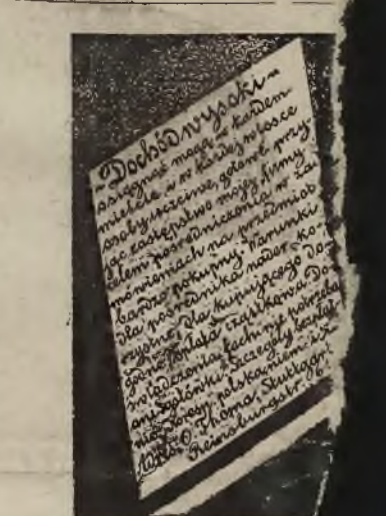 "Dochód wysoki"
osiągnąć mogą w każdem
mieście i w każdej wiosce
osoby uczciwe, zdolne przy-
jąć zastępstwo mojej firmy
celem pośredniczenia w za-
mówieniach na przedmiot
bardzo pokupny. Warunki
dla pośrednika nader ko-
rzystne, dla kupującego do-
godne (spłata cząstkowa). Do
wiadomości fachu nie potrzeba
ani gotówki. Szczegóły bezpłat-
nie. Koresp. polska, niem. i
O. Thoma, Stuttgart
Reinsburgstr.